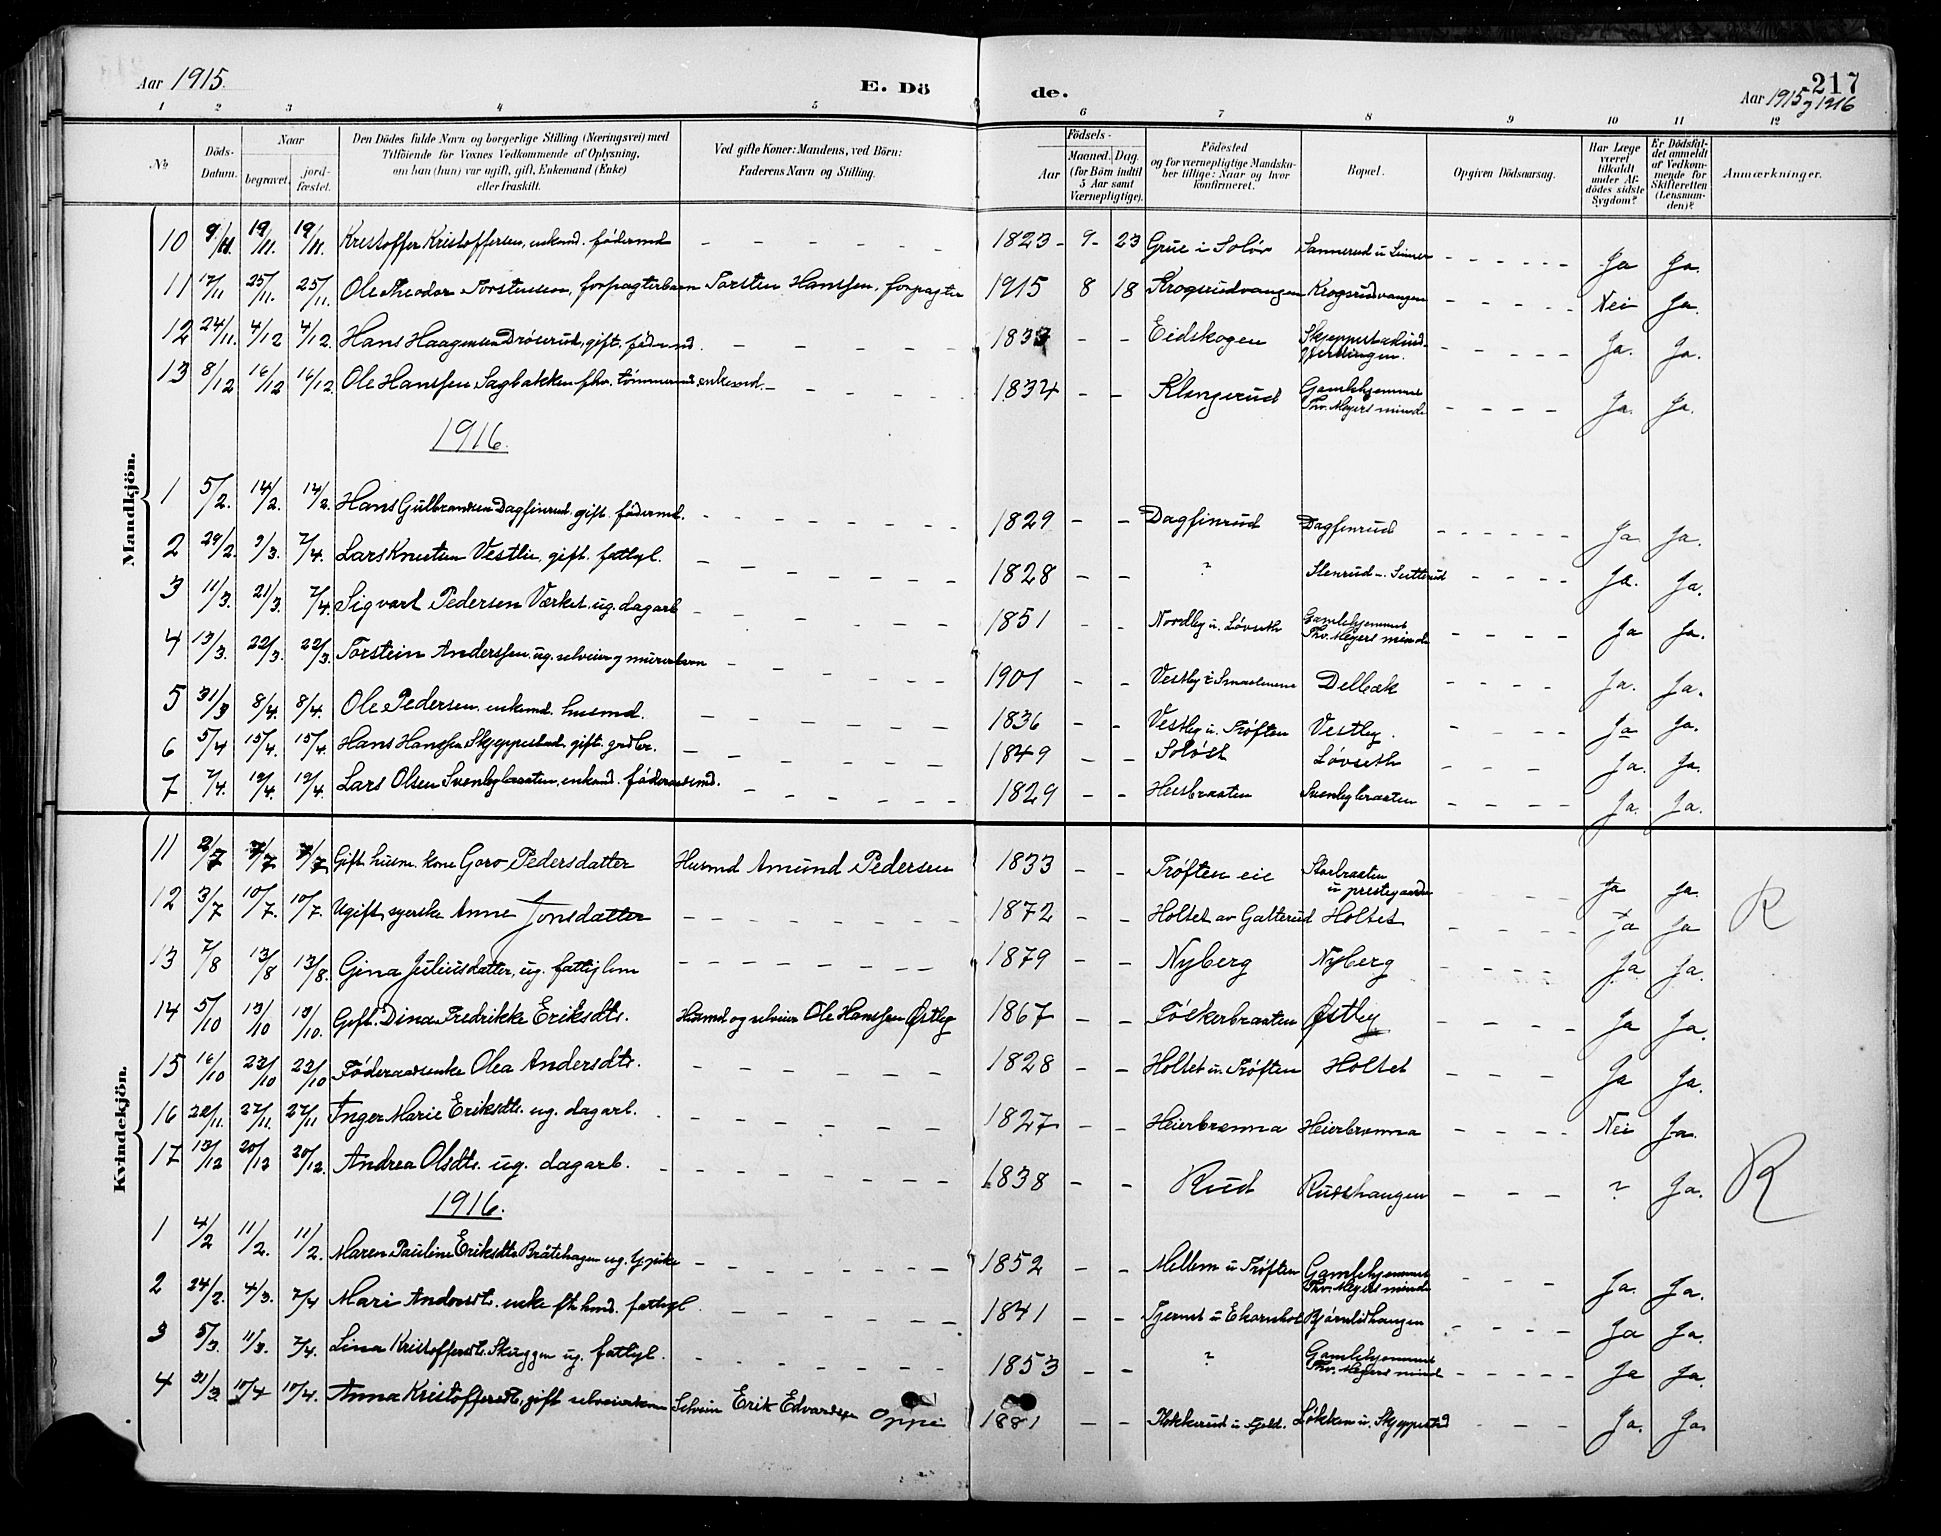 Aar 1915. E. Dö
de. 217
Aar 1915 og 1916
1 2 3 4 5 6 7 8 9 10 11 12
No Döds-Datum. Naar begravet. jord-fæstet. Den Dödes fulde Navn og borgerlige Stilling (Næringsvei) med Tilföiende for Voxnes Vedkommende af Oplysning, om han (hun) var ugift, gift, Enkemand (Enke) eller fraskilt. Ved gifte Koner: Mandens, ved Börn: Faderens Navn og Stilling. Födsels- Aar Maaned. Dag. (for Börn indtil 5 Aar samt Værnepligtige). Födested og for værnepligtige Mandskaber tillige: Naar og hvor konfirmeret. Bopæl. Opgiven Dödsaarsag. Har Læge været tilkaldt under Afdödes sidste Sygdom? Er Dödsfaldet anmeldt af Vedkommende for Skifteretten (Lensmanden)? Anmærkninger.
Mandkjön.
10 9/11 19/11. 19/11. Kristoffer Kristoffersen, enkemd. födermd - - - - - 1823 - 9 - 23 Grue i Solör Sannerud u - - - - - Ja Ja.
11 17/11 25/11. 25/11. Ole Theodor Torstensen, forpagterbarn Torsten Hanssen, forpagter 1915 8 18 Krogsrudvangen Krogsrudvangen - - - - - Nei Ja.
12 24/11. 4/12 4/12. Hans Haagensen Dröserud, gift. födermd. - - - - - 1837 - - Eidskogen - - - - - Ja. Ja.
13 8/12 16/12 16/12. Ole Hanssen Sagbakken fhv. tömmermd, enkemd. - - - - - 1834 - - Klengerud Gamlehjemmet Thv. Meyers minde - - - - Ja. Ja.
1916.
1 5/2. 14/2. 14/2. Hans Gulbrandsen Dagfinrud. gift. födermd. - - - - - 1829 - - Dagfinrud Dagfinrud - - - - - Ja Ja.
2 29/2 9/3. 7/4. Lars Knutsen Vestlie, gift. fattigl. - - - - - 1828 - - ? Stenrud - Sutterud - - - - Ja. Ja.
3 11/3. 21/3. 7/4. Sigvart Pedersen Værket. ug. dagarb - - - - - 1851 - - Nordby u. Lövseth Gamlehjemmet Thv. Meyers minde - - - - Ja Ja.
4 13/3. 22/3. 22/3. Torstein Anderssen. ug. selveier og murersön - - - - - 1901 - - Vestby i Smaalenene Delbæk - - - - Ja. Ja.
5 31/3 8/4. 8/4. Ole Pedersen. enkemd. husmd. - - - - - 1836 - - Vestby u. Tröften Vestby. - - - - Ja Ja.
6 5/4 15/4. 15/4. Hans Hanssen Skjeppestad. gift. grdbr. - - - - - 1849 - - Lövseth - - - Ja. Ja.
7 7/4. 19/4. 19/4. Lars Olsen Svenbybraaten, enkemd. föderaadsmd. - - - - 1829 - - Heisbraaten Svenbybraaten - - - - Ja. Ja.
Kvindekjön.
11 2/7 7/7 7/7 Gift husm. kone Goro Pedersdatter Husmd Amund Pedersen 1833 - - Tröften eie Storbraaten u prestegaarden - - - - Ja Ja.
12 3/7 10/7. 10/7. Ugift syerske Anne Jonsdatter - - - - - 1872 - - Holtet av Galterud Holtet - - - - Ja Ja R
13 7/8 13/8 13/8. Gina Juliusdatter, ug. fattiglem - - - - - 1879 - - Nyberg Nyberg - - - - Ja Ja.
14 5/10 13/10 13/10. Gift. Dina Fredrikke Eriksdtr. Husmd og selveier Ole Hanssen Östby 1867 - - Töskerbraaten Östby - - - - Ja Ja.
15 16/10 23/10 23/10 Föderaadsenke Olea Andersdtr. - - - - - 1828 - - Holtet u. Tröften Holtet - - - - Ja Ja.
16 22/11. 27/11. 27/11 Inger Marie Eriksdtr. ug. dagarb. - - - - - 1827 - - Heierbrænna Heierbrænna - - - - Nei Ja.
17 13/12 20/12 20/12. Andrea Olsdtr. ug. dagarb. - - - - - 1838 - - Rud Rudshaugen - - - ? Ja. R
1916.
1 4/2 11/2. 11/2. Maren Pauline Eriksdtr Bråtehagen ug. - - - - - 1852 - - Mellem u Tröften Gamlehjemmet Thv. Meyers minde - - - Ja. Ja.
2 24/2. 4/3. 7/4 Mari Andersdtr. enke fhv husmd. fattigl. - - - - - 1841 - - Tjernet u Ekornhol Bjørnlidhaugen - - - - Ja Ja.
3 5/3. 11/3. 7/4. Lina Kristoffersdtr. Skuggen ug. fattigl. - - - - - 1853 - - ? Gamlehjemmet Thv. Meyers minde - - - - Ja Ja.
4 31/3. 10/4 10/4. Anna Kristoffersdtr, gift selveierkone Selveier Erik Edvardsen Oppi 1881 - - Stokkerud u Fjeld. Lökken u. Skjeppestad - - - Ja. Ja.